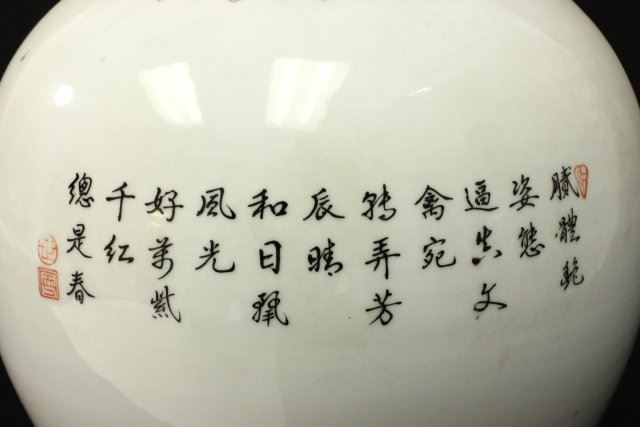 膩體艶
姿態
逼真文
禽宛
轉弄芳
辰晴
和日麗
風光
好萬紫
千紅
總是春